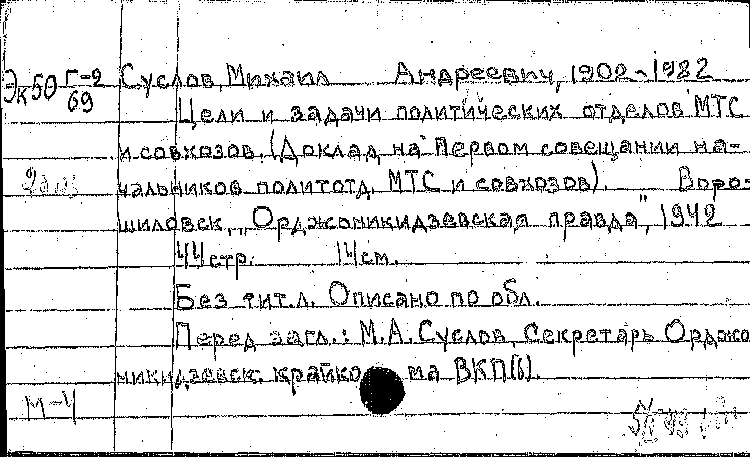 Эк50 Г-2 Суслов, Михаил Андреевич, 1902-1982
69
Цели и задачи политических отделов МТС
и совхозов. (Доклад на Первом совещании на-
чальников политотд. МТС и совхозов). Воро-
шиловск, „Орджоникидзевская правда", 1942
44 стр. 14 см.
Без тит.л. Описано по обл.
Перед загл.: М.А. Суслов, Секретарь Орджо
никидзевск. крайко ма ВКП(б).
М-4